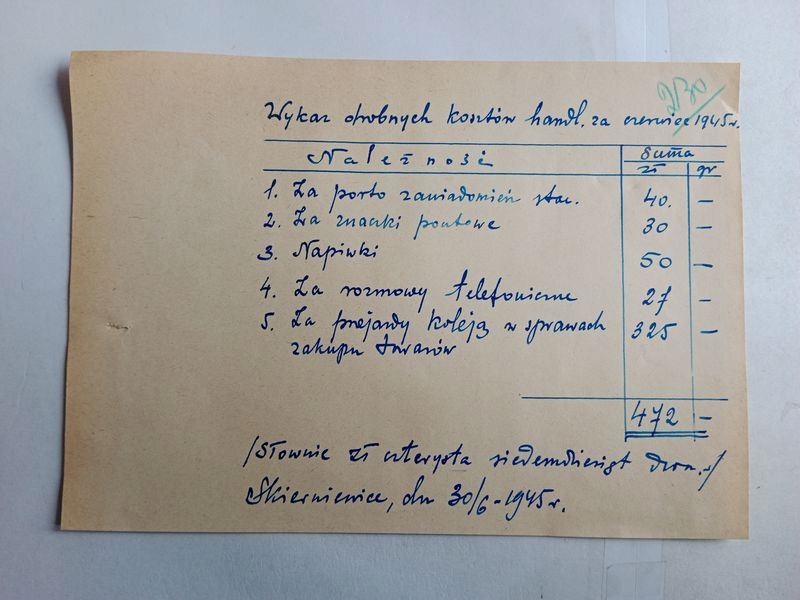 230
Wykaz drobnych kosztów handl. za czerwiec 1945r.
Należność Suma
zł gr
1. Za porto zawiadomień stac. 40. —
2. Za znaczki pocztowe 30 —
3. Napiwki 50 —
4. Za rozmowy telefoniczne 27 —
5. Za przejazdy koleją w sprawach 325 —
zakupu towarów
472 —
/Słownie zł czterysta siedemdziesiąt dwa
Skierniewice, dn 30/6-1945r.